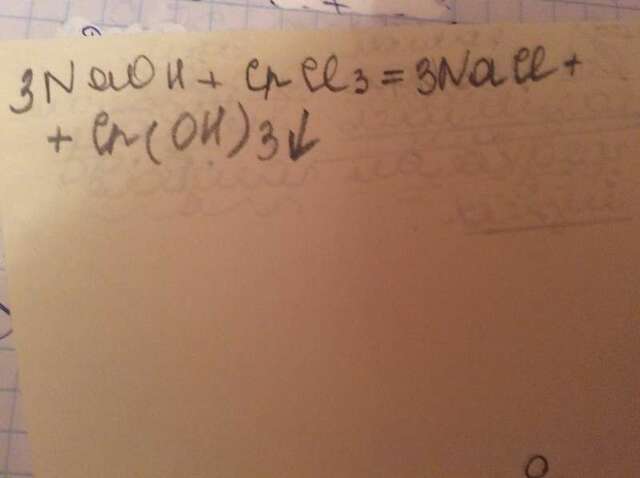 3NaOH + CrCl3 = 3NaCl +
+ Cr(OH)3↓